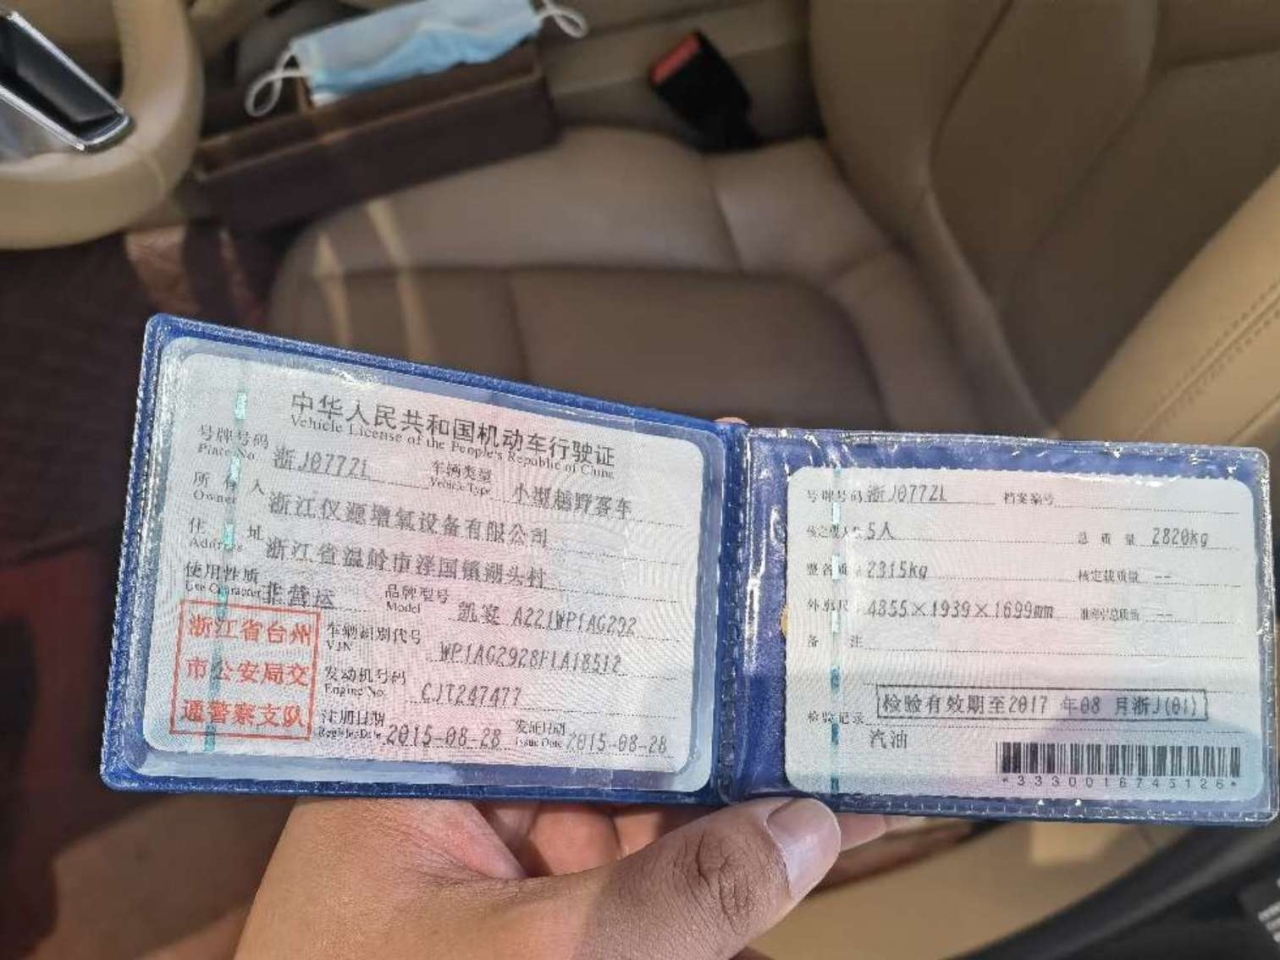 中华人民共和国机动车行驶证
Vehicle License of the People's Republic of China
号牌号码 浙J077ZL 车辆类型 小型越野客车
Plate No. Vehicle Type
所有人 浙江仪源增氧设备有限公司
Owner
住址 浙江省温岭市泽国镇湖头村
Address
使用性质 非营运 品牌型号 凯宴 A221WP1AG292
Use Character Model
浙江省台州
市公安局交
通警察支队
车辆识别代号
VIN
发动机号码 CJT247477
Engine No.
注册日期 2015-08-28 发证日期 2015-08-28
Register Date Issue Date
号牌号码 浙J077ZL 档案编号
核定载人数 5人 总质量 2820kg
整备质量 2315kg 核定载质量 --
外廓尺寸 4855×1939×1699mm 准牵引总质量 --
备注
检验记录 检验有效期至2017 年08 月浙J(01)
汽油
*3330016745126*